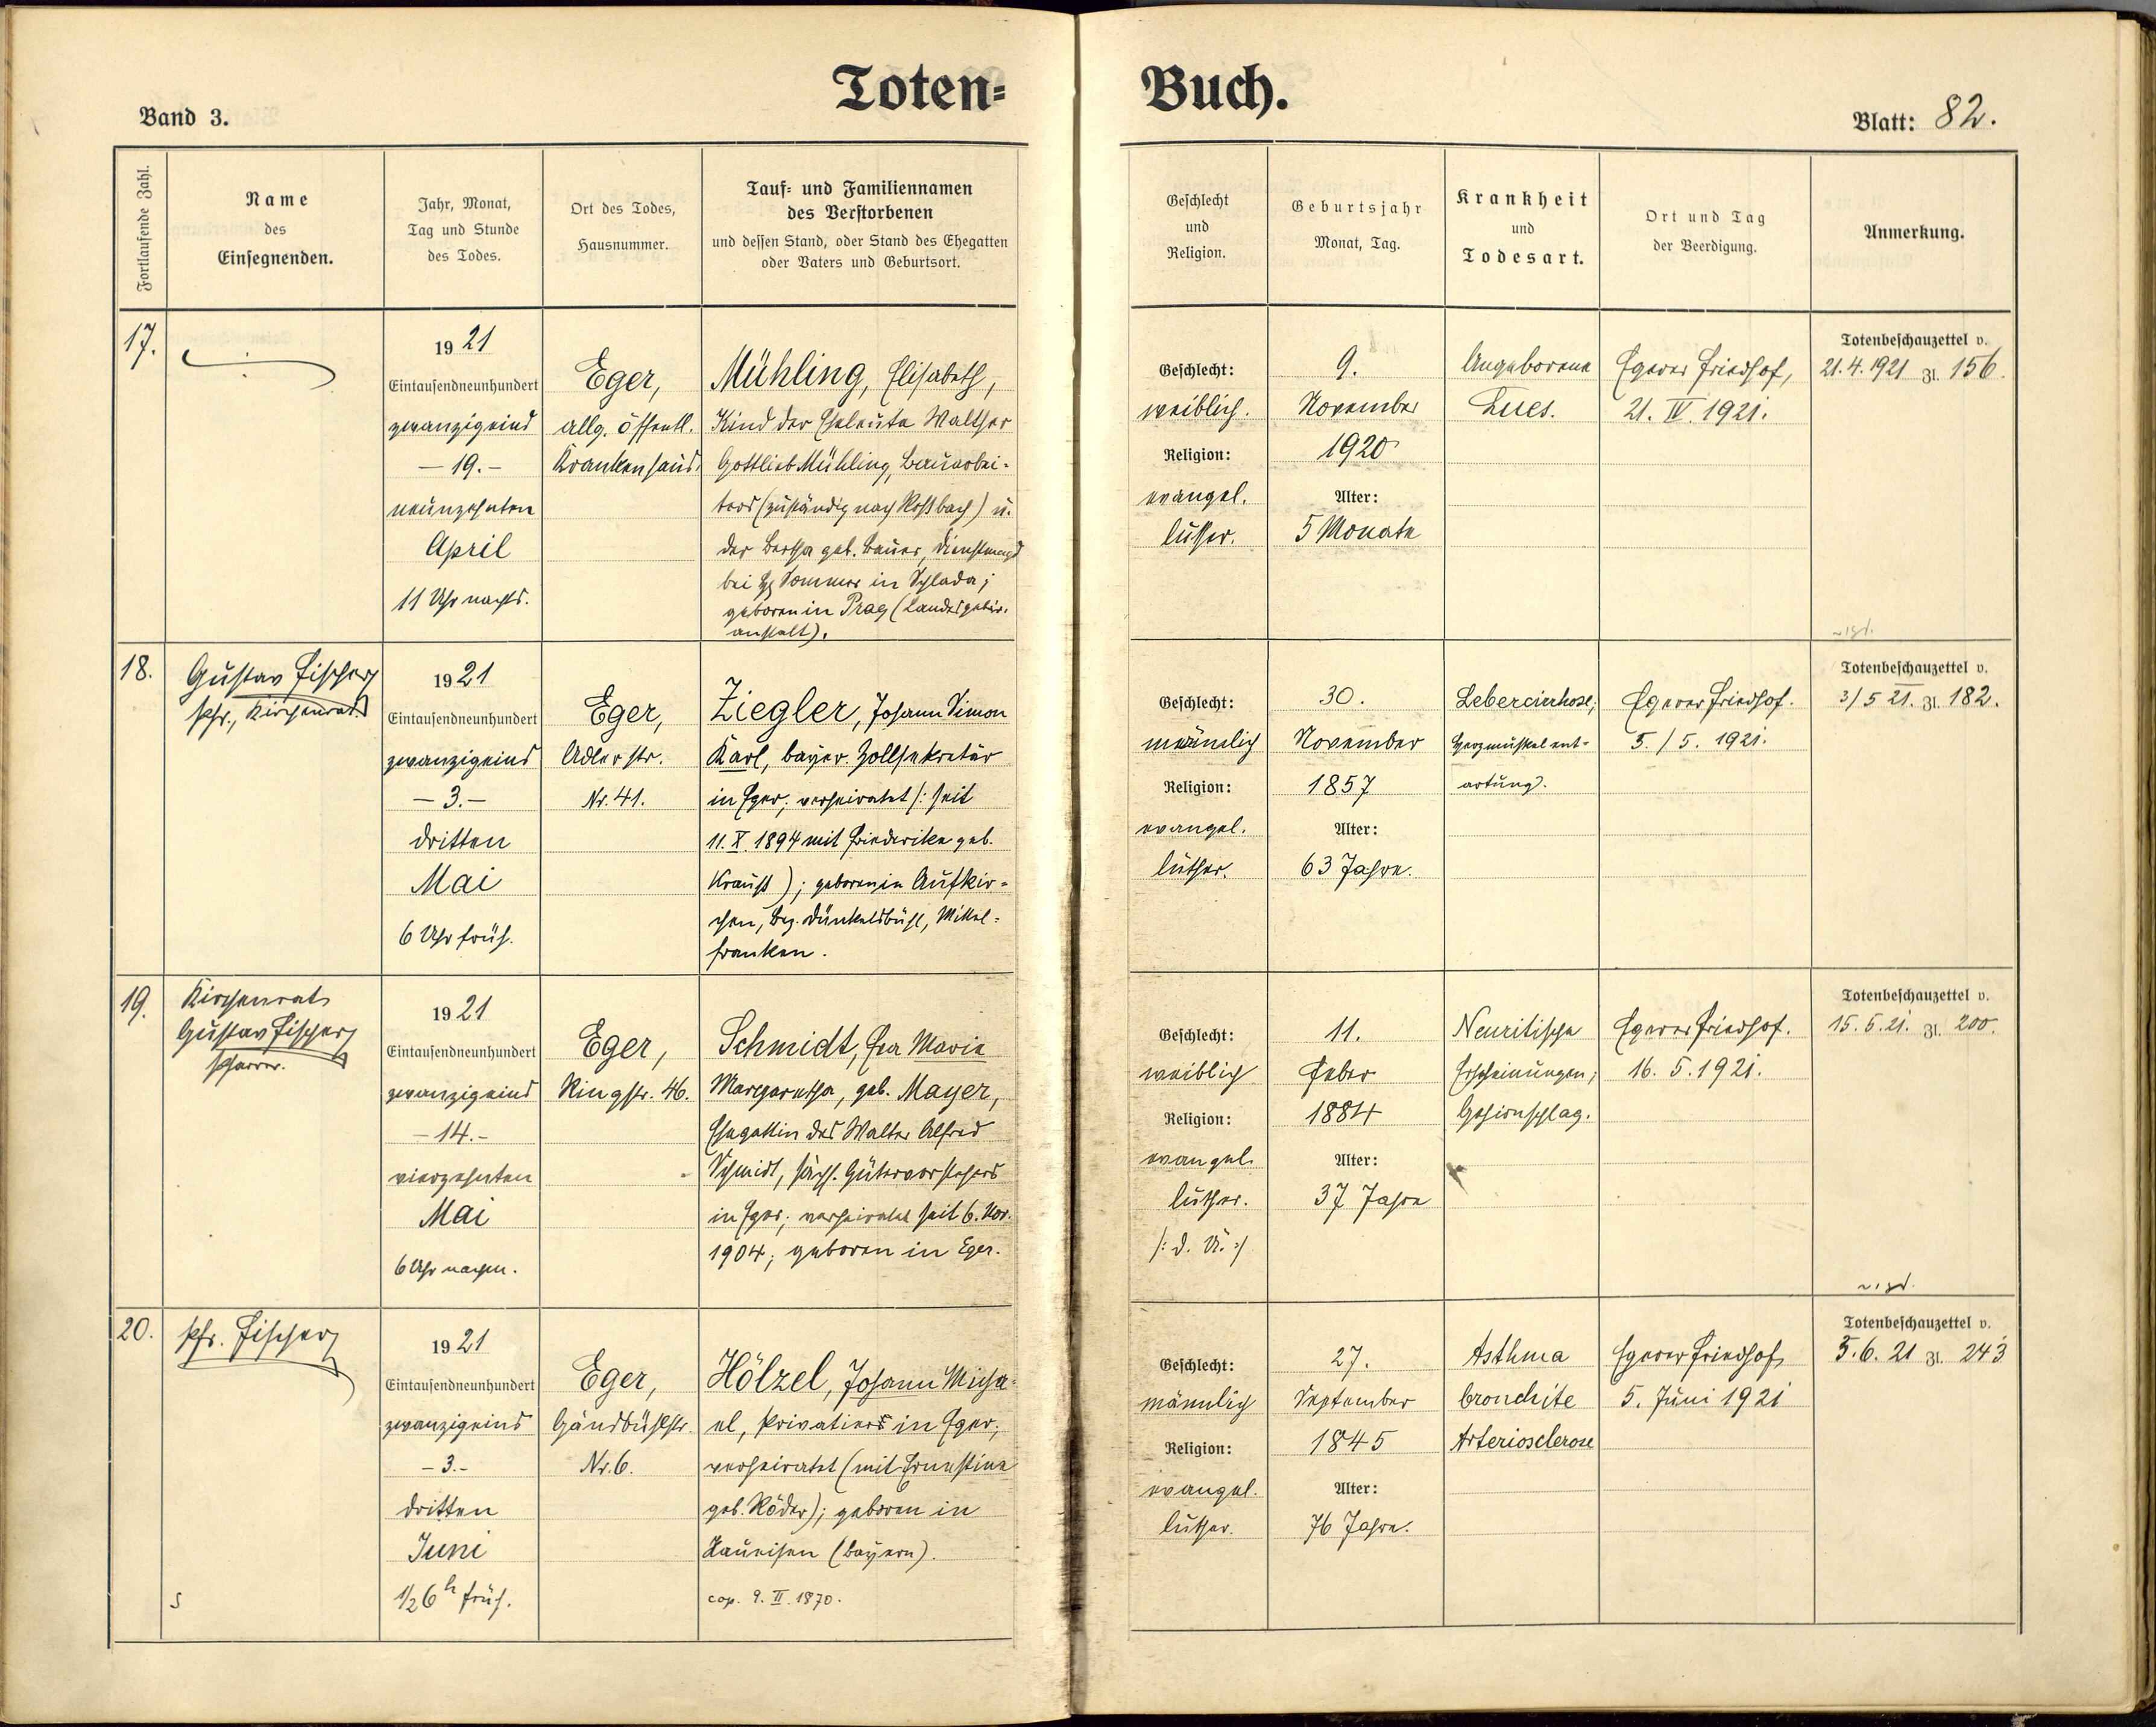 Toten-Buch.
Band 3.
Blatt: 82.
Fortlaufende Zahl.
Name
des
Einsegnenden.
Jahr, Monat,
Tag und Stunde
des Todes.
Ort des Todes,
Hausnummer.
Tauf- und Familiennamen
des Verstorbenen
und dessen Stand, oder Stand des Ehegatten
oder Vaters und Geburtsort.
Geschlecht
und
Religion.
Geburtsjahr
Monat, Tag.
Krankheit
und
Todesart.
Ort und Tag
der Beerdigung.
Anmerkung.
17.
1921
Eintausendneunhundert
zwanzigeins
– 19. –
neunzehnten
April
11 Uhr nachts.
Eger,
allg. öffentl.
Krankenhaus.
Mühling, Elisabeth,
Kind der Eheleute Walther
Gottlieb Mühling, Bauarbei-
ters (zuständig nach Roßbach) u.
der Bertha geb. Bauer, Dienstmagd
bei Sommer in Schlada;
geboren in Prag (Landesgebär-
anstalt).
Geschlecht:
weiblich.
Religion:
evangel.
luther.
9.
November
1920
Alter:
5 Monate
Angeborene
Lues.
Egerer Friedhof,
21. IV. 1921.
Totenbeschauzettel v.
21.4.1921 Zl. 156.
18.
Gustav Fischer
Pfr., Kirchenrat
1921
Eintausendneunhundert
zwanzigeins
– 3. –
dritten
Mai
6 Uhr früh.
Eger,
Adlerstr.
Nr. 41.
Ziegler, Johann Simon
Karl, bayer. Zollsekretär
in Eger; verheiratet /: seit
11. X. 1894 mit Friederike geb.
Krauß); geboren in Aufkir-
chen, Bez. Dünkelsbühl, Mittel-
franken.
Geschlecht:
männlich
Religion:
evangel.
luther.
30.
November
1857
Alter:
63 Jahre.
Lebercirrhose;
Herzmuskelent-
artung.
Egerer Friedhof.
5./5. 1921.
Totenbeschauzettel v.
3/5 21. Zl. 182.
19.
Kirchenrat
Gustav Fischer
Pfarrer.
1921
Eintausendneunhundert
zwanzigeins
– 14. –
vierzehnten
Mai
6 Uhr nachm.
Eger,
Ringstr. 46.
Schmidt, Eva Maria
Margaretha, geb. Mayer,
Ehegattin des Walter Alfred
Schmidt, sächs. Gütervorstehers
in Eger; verheiratet seit 6. Nov.
1904; geboren in Eger.
Geschlecht:
weiblich
Religion:
evangel.
luther.
/: d. Ü. :/
11.
Feber
1884
Alter:
37 Jahre
Neuritische
Erscheinungen;
Gehirnschlag.
Egerer Friedhof.
16. 5. 1921.
Totenbeschauzettel v.
15.5.21. Zl. 200.
20.
Pfr. Fischer
1921
Eintausendneunhundert
zwanzigeins
– 3. –
dritten
Juni
1/2 6h früh.
Eger,
Nr. 6.
Hölzel, Johann Micha-
el, Privatiers in Eger;
verheiratet (mit Ernestine
geb. Röder); geboren in
(Bayern).
cop. 9. II. 1870.
Geschlecht:
männlich
Religion:
evangel.
luther.
27.
September
1845
Alter:
76 Jahre.
Asthma
bronchite
Arteriosclerose
Egerer Friedhof
5. Juni 1921
Totenbeschauzettel v.
3.6. 21 Zl. 243